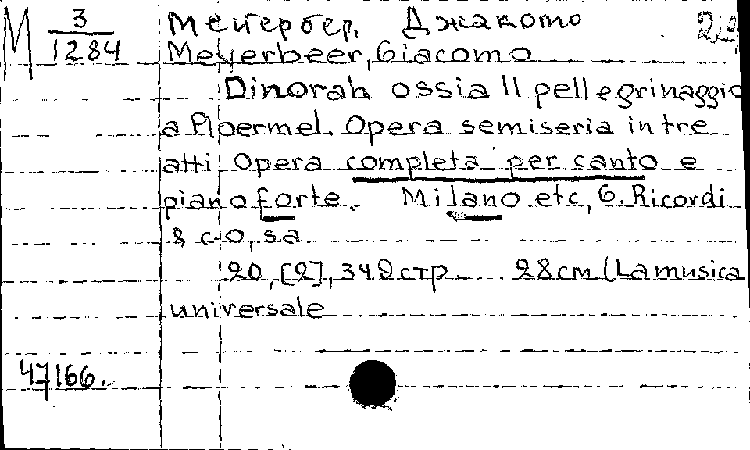 М 3/1284
Мейербер, Джакомо
Meyerbeer, Giacomo
Dinorah ossia Il pellegrinaggio
a Ploermel. Opera semiseria in tre
atti Opera completa per canto e
pianoforte. Milano etc, G. Ricordi
& c-o, s.a.
20, [2], 349 стр. 28 см (La musica
universale
47166.